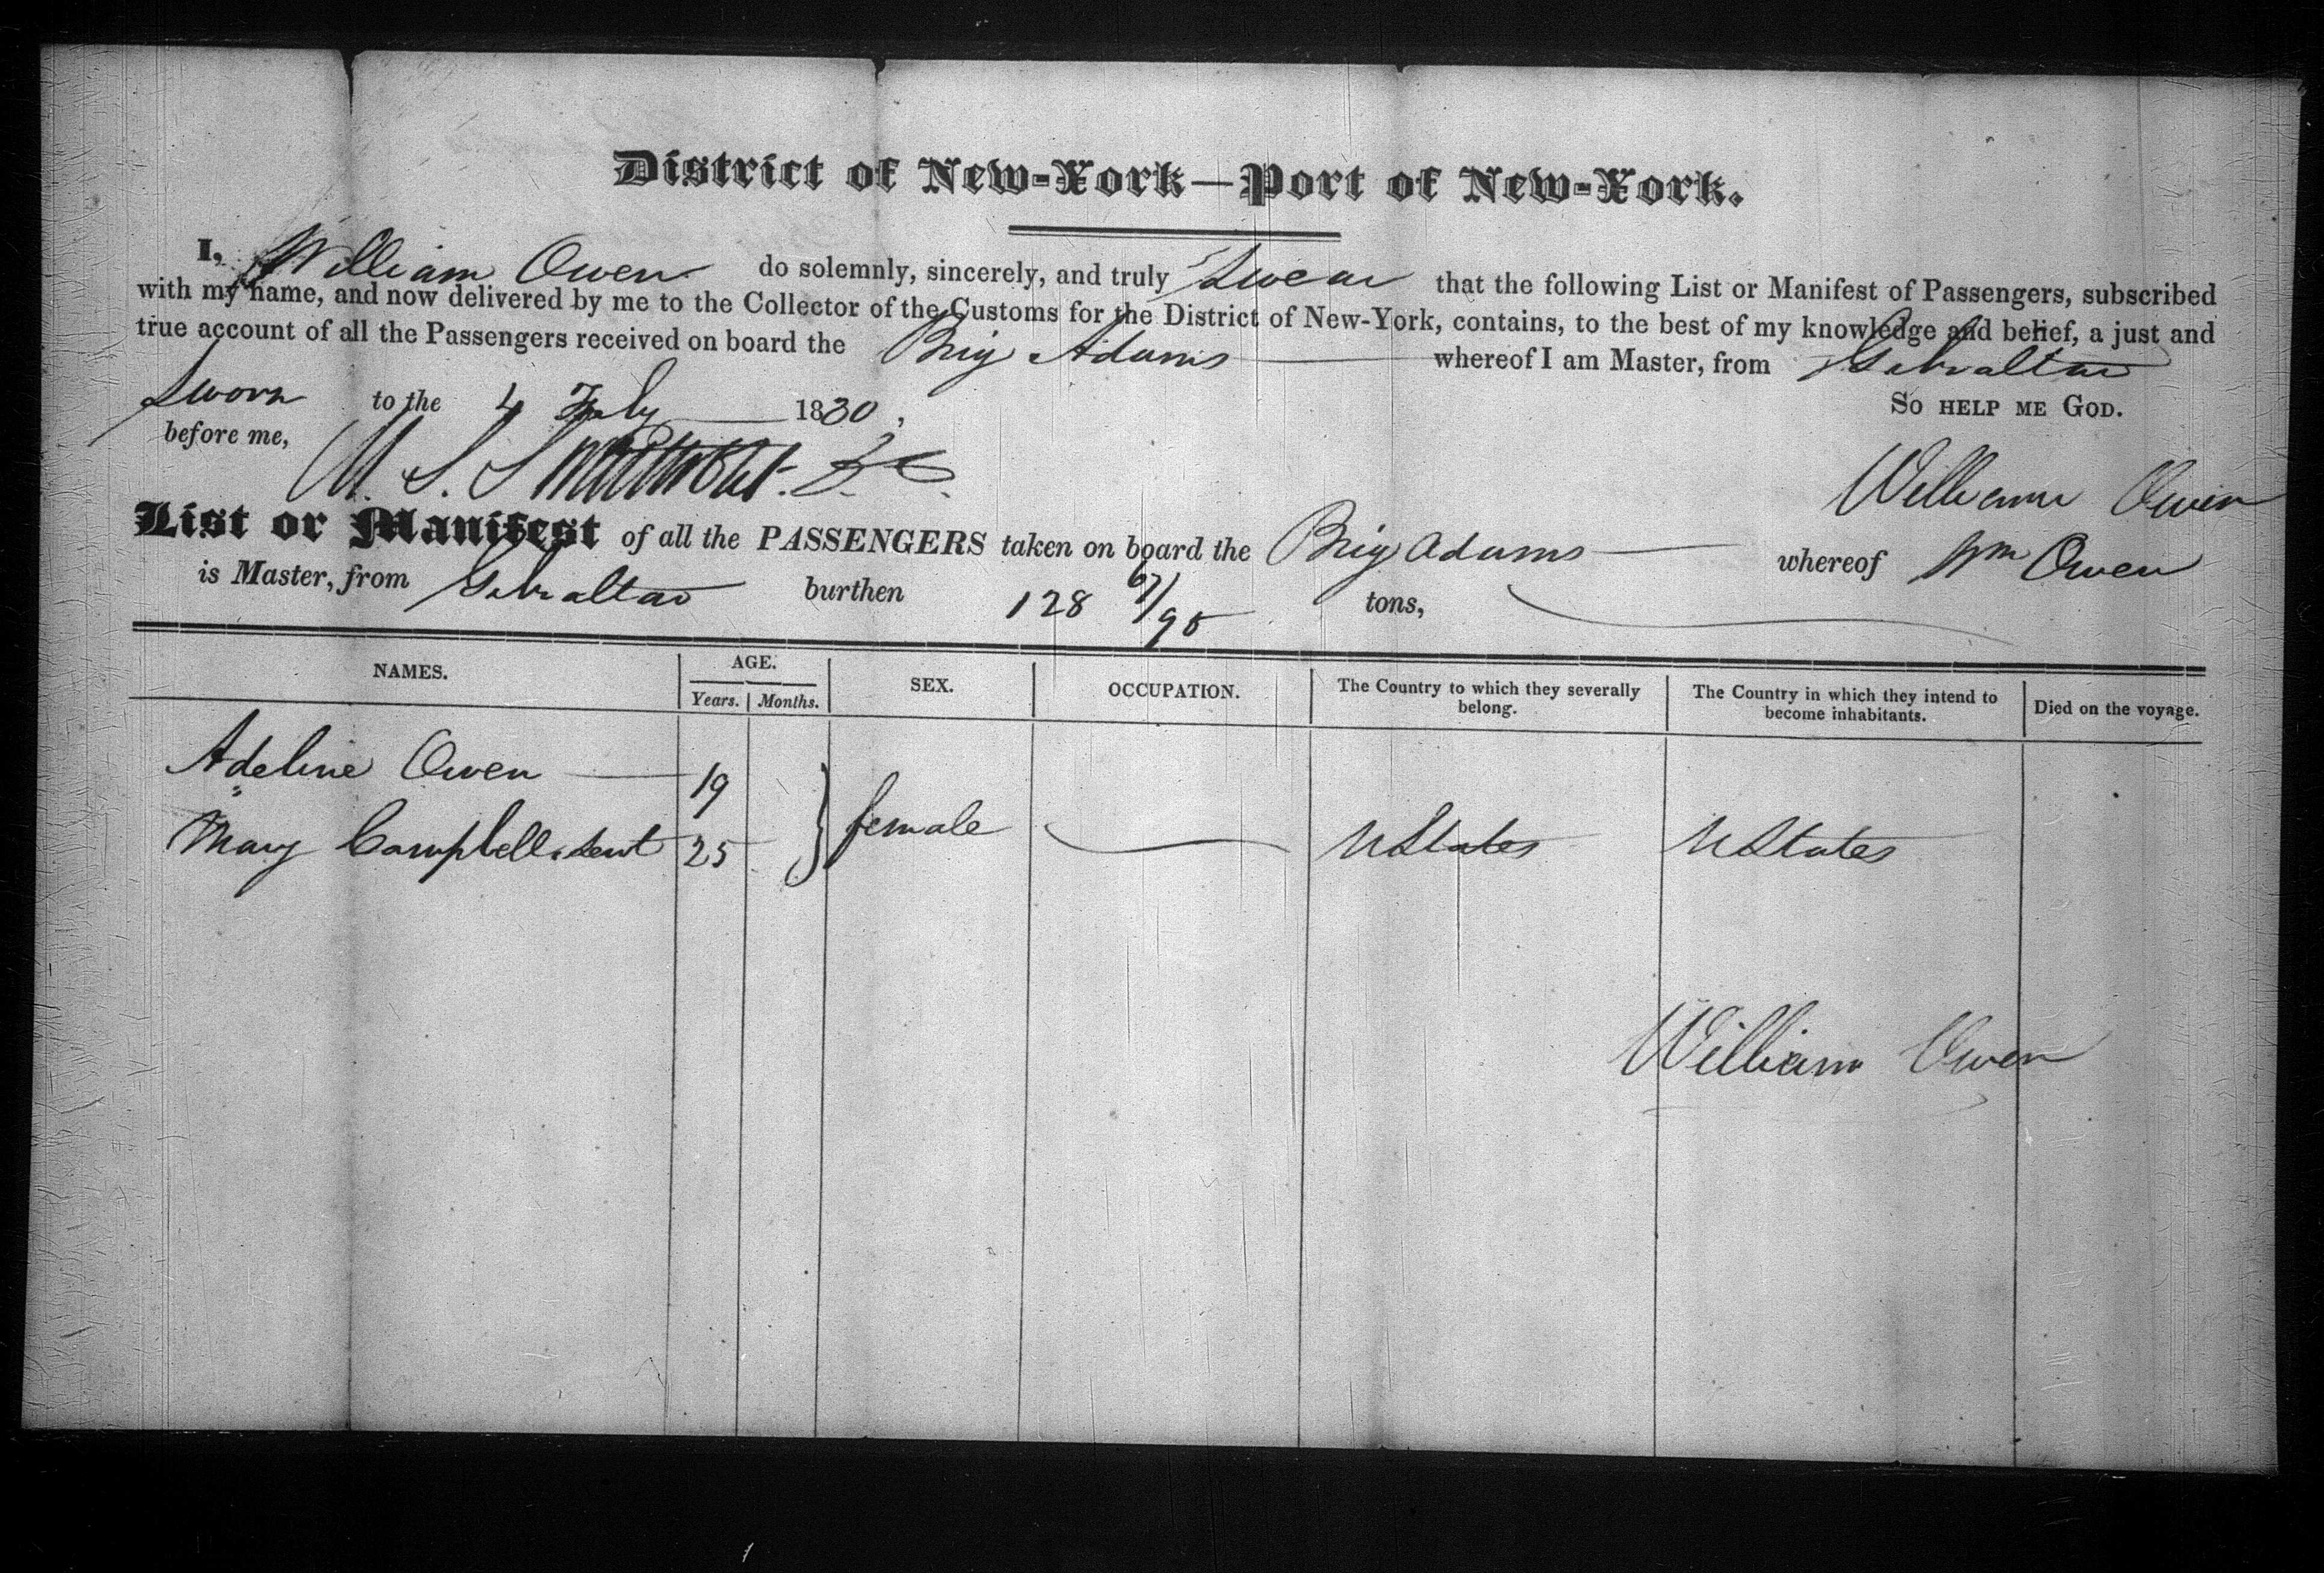 District of New-York—Port of New-York.
I, William Owen do solemnly, sincerely, and truly Swear that the following List or Manifest of Passengers, subscribed
with my name, and now delivered by me to the Collector of the Customs for the District of New-York, contains, to the best of my knowledge and belief, a just and
true account of all the Passengers received on board the Brig Adams whereof I am Master, from Gibraltar
Sworn to the 4 July 1830,
So help me God.
before me,
M. S. Swartwout. D. C.
William Owen
List or Manifest of all the PASSENGERS taken on board the Brig Adams whereof Wm Owen
is Master, from Gibraltar burthen 128 67/95 tons,
NAMES. AGE. SEX. OCCUPATION. The Country to which they severally belong. The Country in which they intend to become inhabitants. Died on the voyage.
Years. Months.
Adeline Owen 19
Mary Campbell, servt 25 } female UStates UStates
William Owen